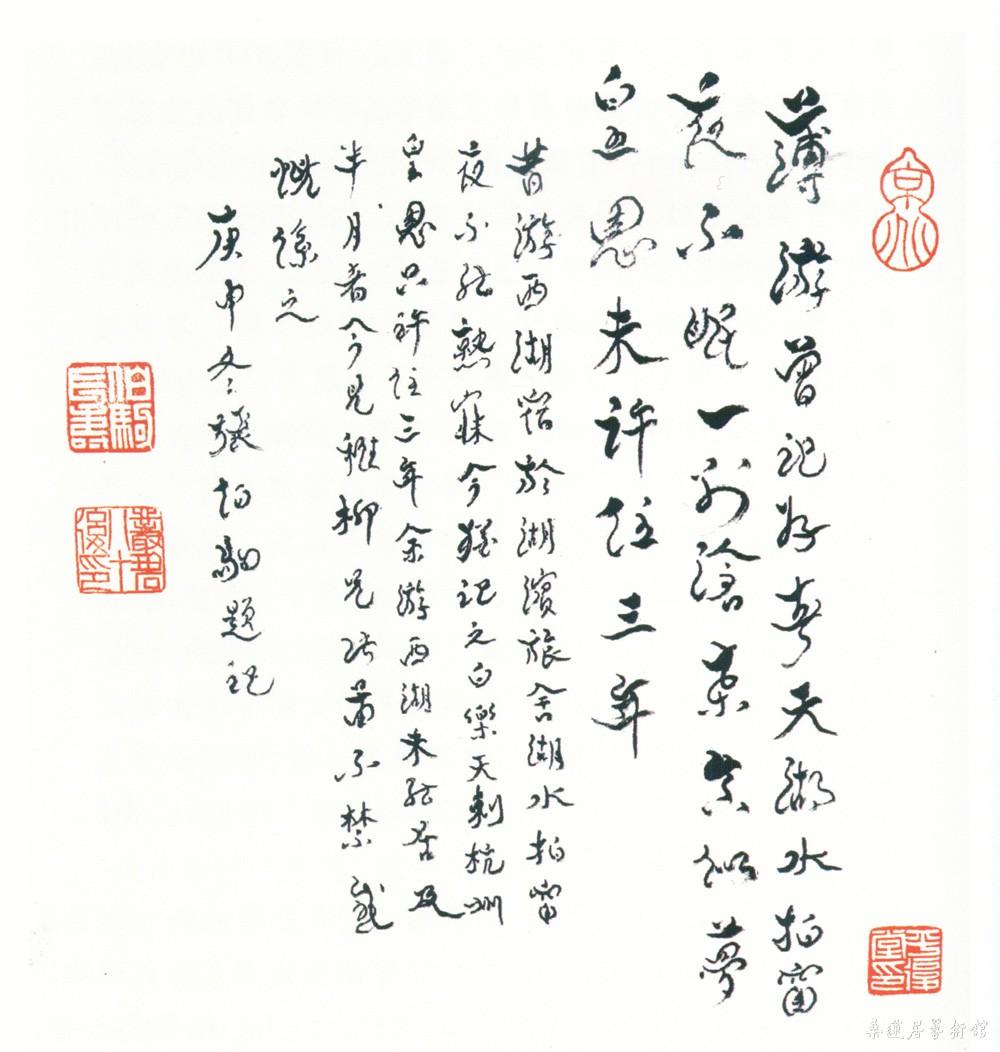 京兆
薄游曾記好春天湖水拍窗
夜不眠一別滄桑真似夢
皇恩未許住三年
昔游西湖宿於湖濱旅舍湖水拍窗
夜不能熟寐今猶記之白樂天刺杭州
皇恩只許住三年余游西湖未能居及
半月者今見稚柳兄此圖不禁感
慨係之
庚申冬張伯駒題記
伯駒長壽
叢碧八十後印
平復堂印
桑蓮居藝術館